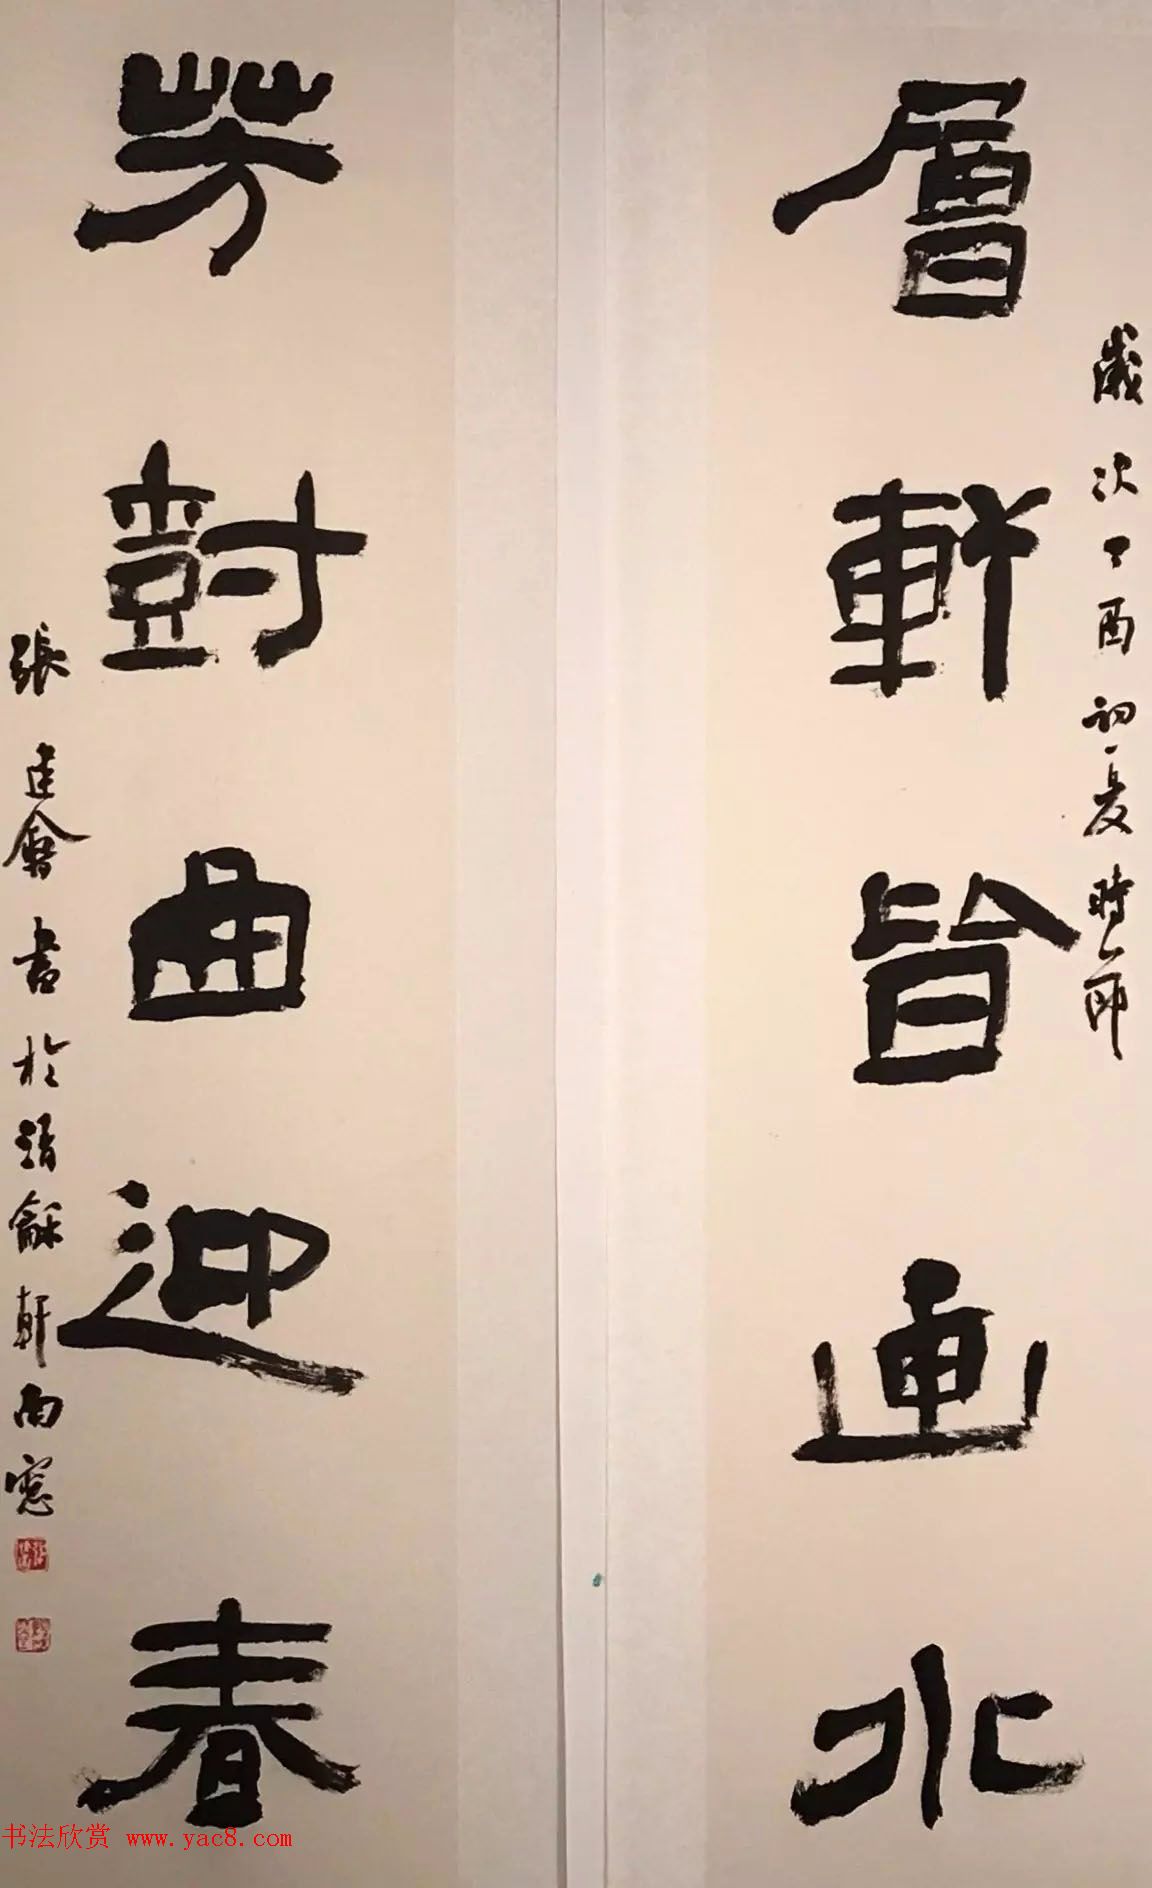 歲次丁酉初夏時節
層軒皆画水
芳尌曲迎春
張建會書於清龢軒南窻
书法欣赏 www.yac8.com